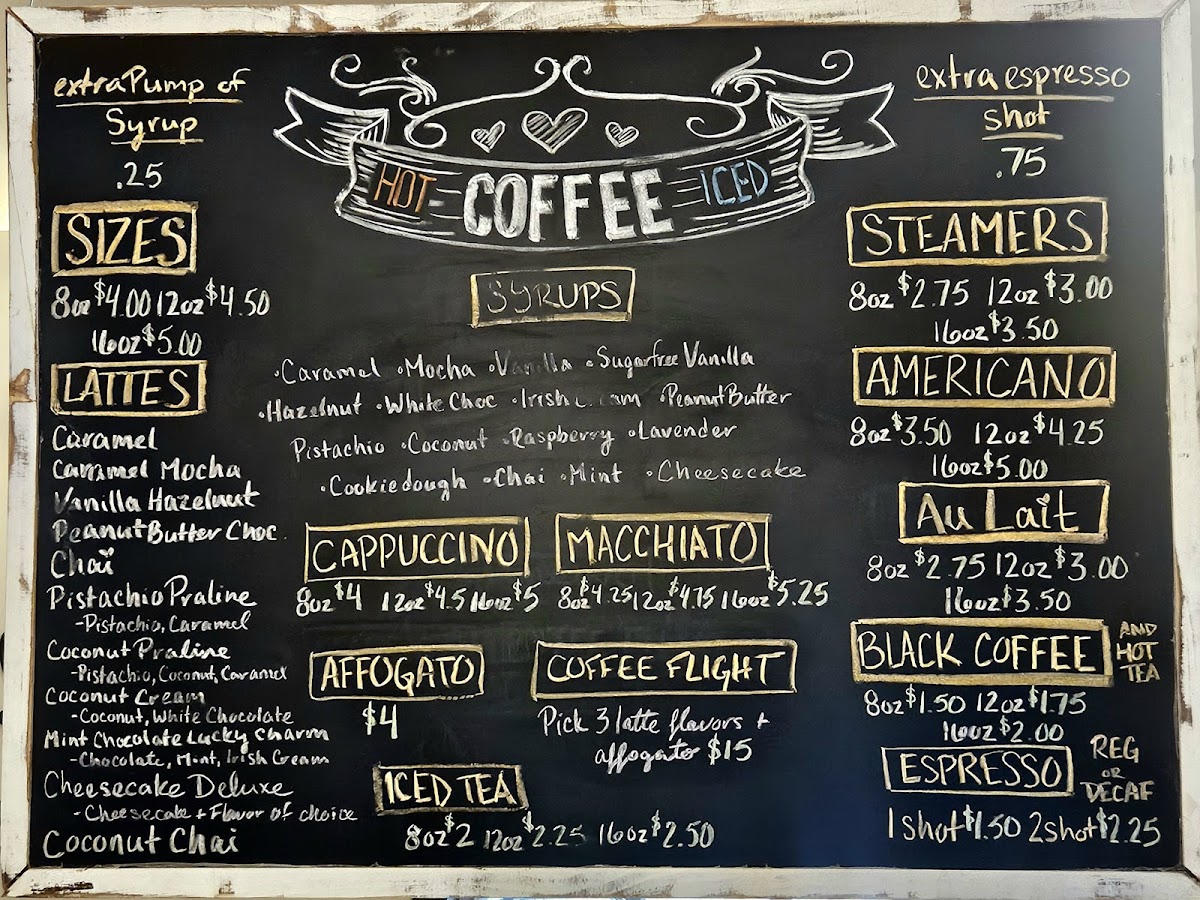 extra Pump of
Syrup
.25
HOT COFFEE ICED
extra espresso
shot
.75
SIZES
8oz $4.00 12oz $4.50
16oz $5.00
LATTES
Caramel
Caramel Mocha
Vanilla Hazelnut
Peanut Butter Choc.
Chai
Pistachio Praline
-Pistachio, Caramel
Coconut Praline
-Pistachio, Coconut, Caramel
Coconut Cream
-Coconut, White Chocolate
Mint Chocolate Lucky Charm
-Chocolate, Mint, Irish Cream
Cheesecake Deluxe
-Cheesecake + Flavor of choice
Coconut Chai
SYRUPS
•Caramel •Mocha •Vanilla •Sugarfree Vanilla
•Hazelnut •White Choc •Irish •Peanut Butter
Pistachio •Coconut •Raspberry •Lavender
•Cookiedough •Chai •Mint •Cheesecake
CAPPUCCINO
8oz $4 12oz $4.5 16oz $5
MACCHIATO
8oz $4.25 12oz $4.75 16oz $5.25
AFFOGATO
$4
COFFEE FLIGHT
Pick 3 latte flavors +
affogato $15
ICED TEA
8oz $2 12oz $2.25 16oz $2.50
STEAMERS
8oz $2.75 12oz $3.00
16oz $3.50
AMERICANO
8oz $3.50 12oz $4.25
16oz $5.00
Au Lait
8oz $2.75 12oz $3.00
16oz $3.50
BLACK COFFEE
AND
HOT
TEA
8oz $1.50 12oz $1.75
16oz $2.00
ESPRESSO
REG
OR
DECAF
1 shot $1.50 2 shot $2.25